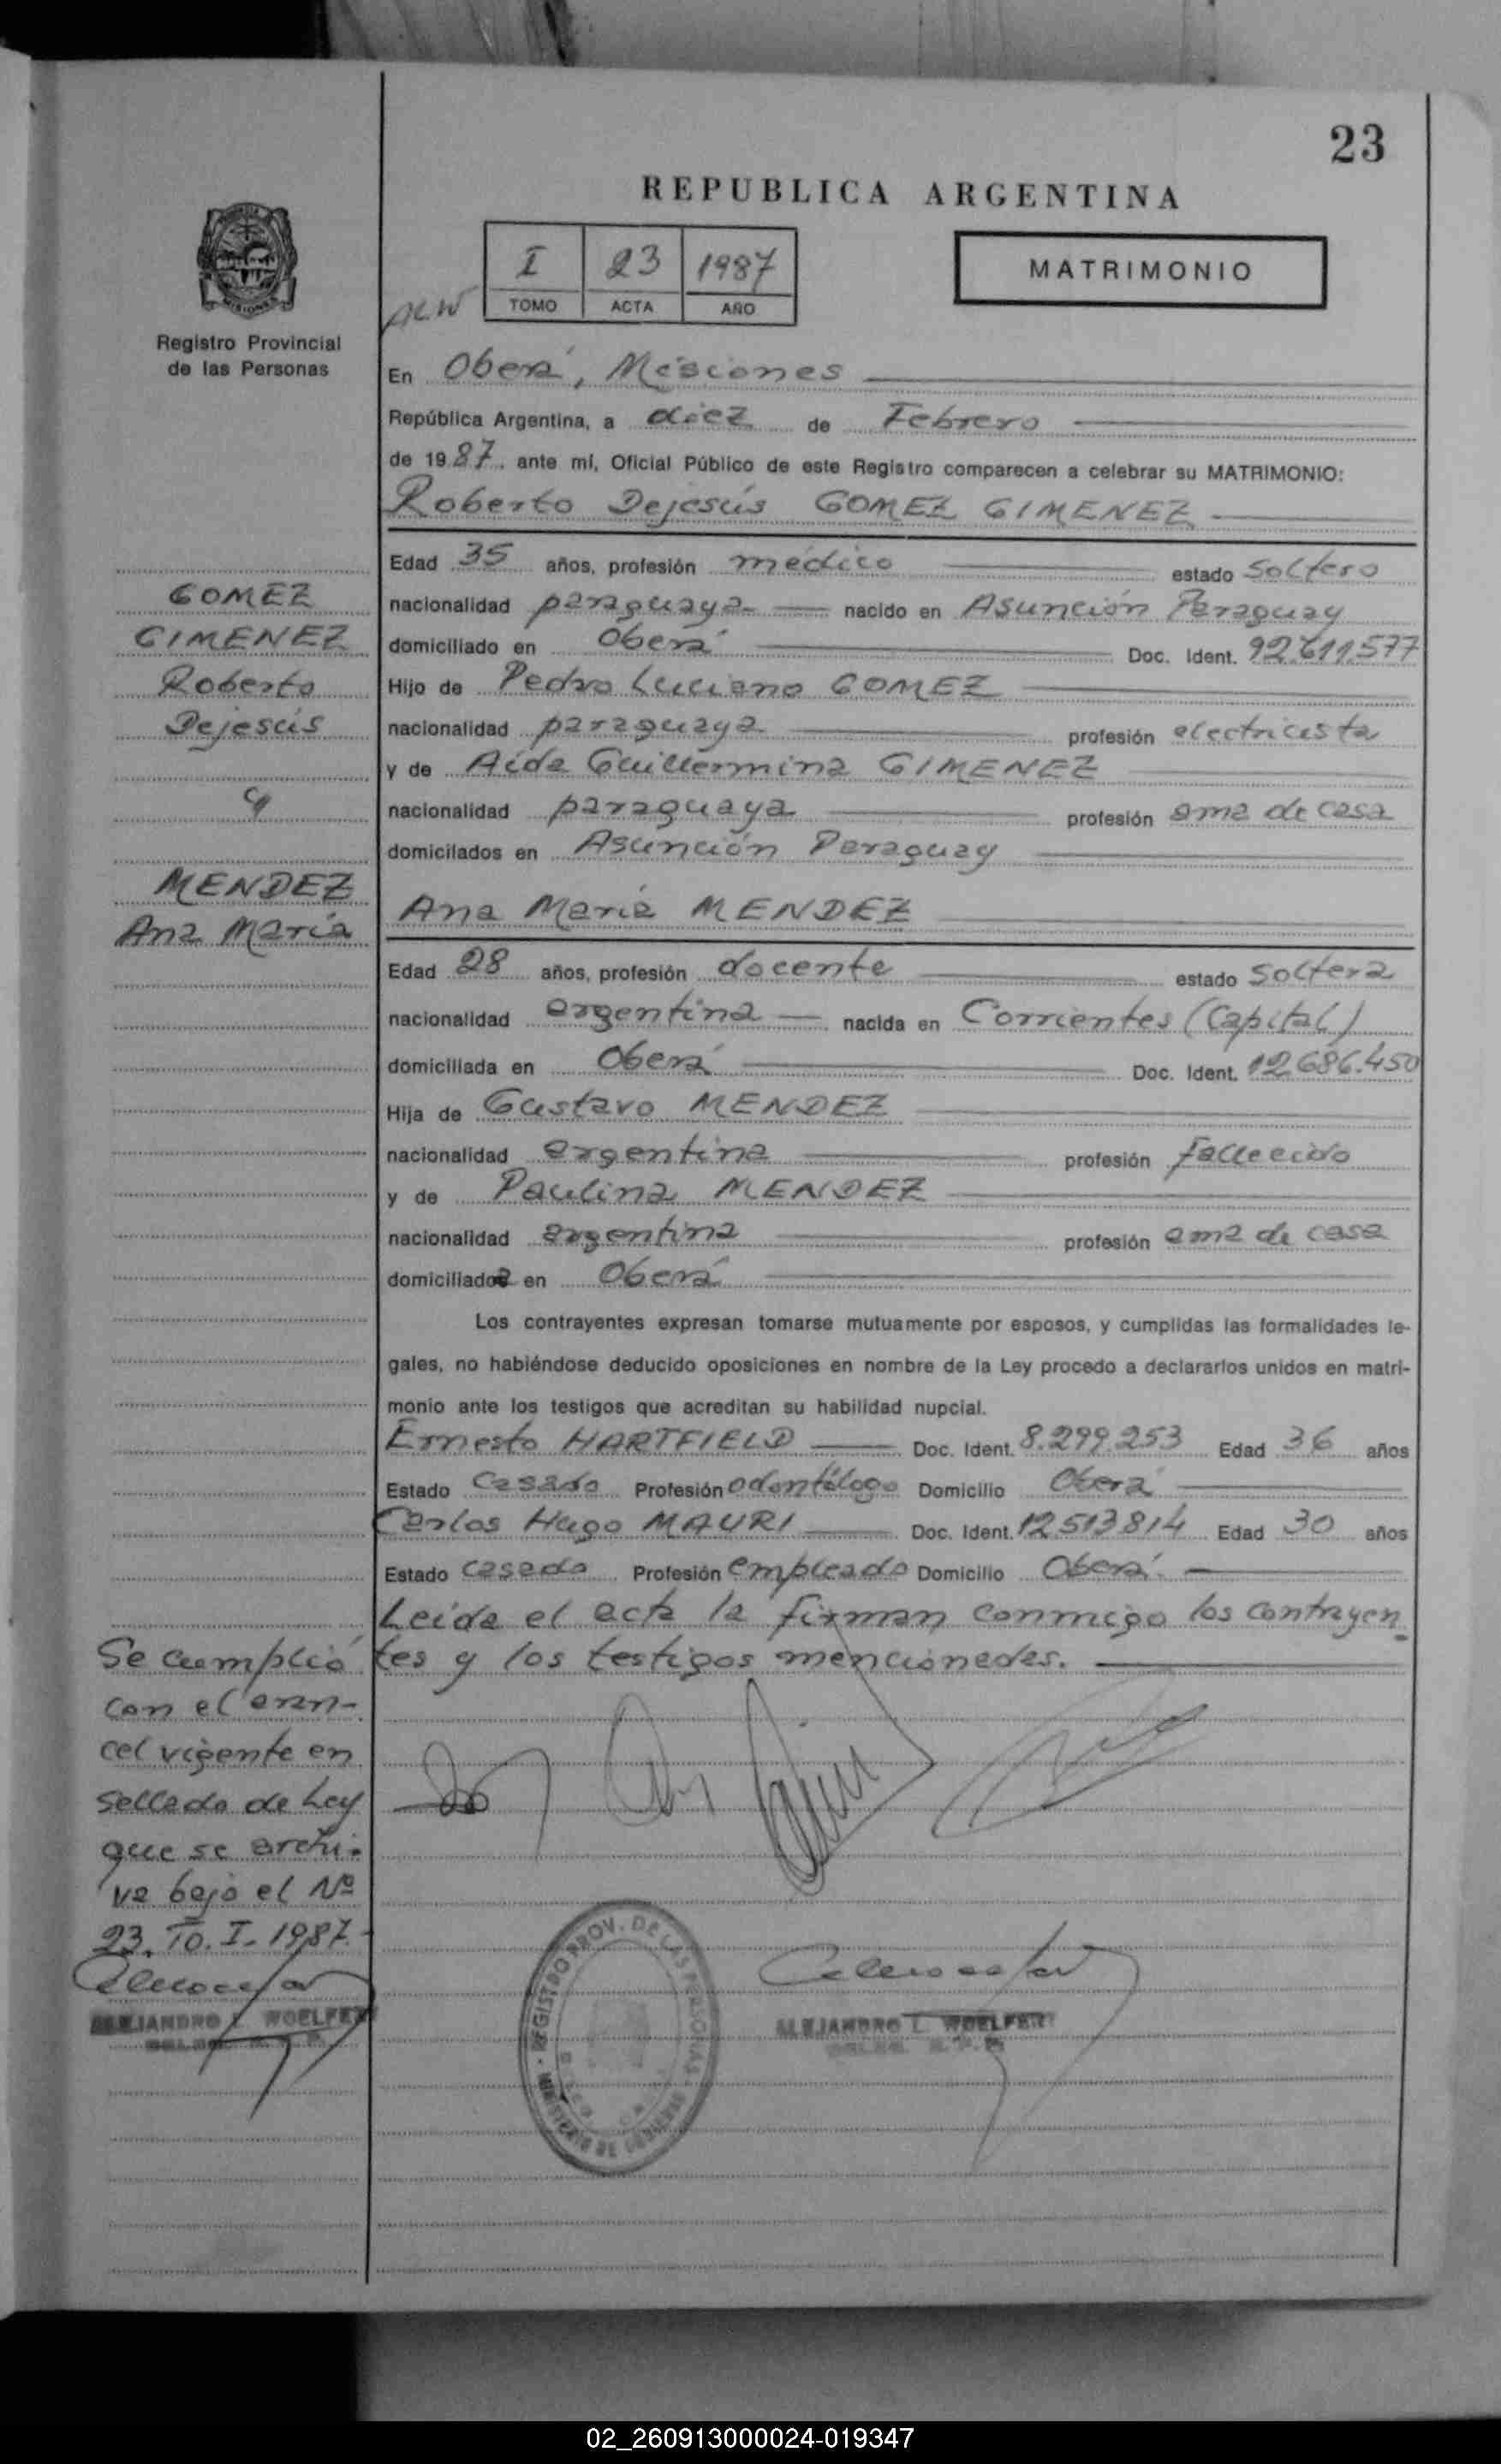 23
REPUBLICA ARGENTINA
I 23 1987
TOMO ACTA AÑO
MATRIMONIO
ALW
MISIONES
Registro Provincial
de las Personas
En Oberá, Misiones
República Argentina, a diez de Febrero
de 1987, ante mí, Oficial Público de este Registro comparecen a celebrar su MATRIMONIO:
Roberto Dejesús GOMEZ GIMENEZ
Edad 35 años, profesión médico estado soltero
nacionalidad paraguaya nacido en Asunción Paraguay
domiciliado en Oberá Doc. Ident. 92.611.577
Hijo de Pedro Luciano GOMEZ
nacionalidad paraguaya profesión electricista
y de Aida Guillermina GIMENEZ
nacionalidad paraguaya profesión ama de casa
domicilados en Asunción Paraguay
Ana María MENDEZ
Edad 28 años, profesión docente estado soltera
nacionalidad argentina nacida en Corrientes (Capital)
domiciliada en Oberá Doc. Ident. 12.686.450
Hija de Gustavo MENDEZ
nacionalidad argentina profesión fallecido
y de Paulina MENDEZ
nacionalidad argentina profesión ama de casa
domiciliada en Oberá
Los contrayentes expresan tomarse mutuamente por esposos, y cumplidas las formalidades le-
gales, no habiéndose deducido oposiciones en nombre de la Ley procedo a declararlos unidos en matri-
monio ante los testigos que acreditan su habilidad nupcial.
Ernesto HARTFIELD Doc. Ident. 8.299.253 Edad 36 años
Estado casado Profesión odontólogo Domicilio Oberá
Carlos Hugo MAURI Doc. Ident. 12513814 Edad 30 años
Estado casado Profesión empleado Domicilio Oberá.
Leida el acta la firman conmigo los contrayen-
tes y los testigos mencionados.
GOMEZ
GIMENEZ
Roberto
Dejesús
y
MENDEZ
Ana María
Se cumplió
con el aran-
cel vigente en
sellado de Ley
que se archi-
va bajo el Nº
23. To. I. 1987.
ALEJANDRO L. WOELFERT
REGISTRO PROV. DE LAS PERSONAS
MINISTERIO DE GOBIERNO
ALEJANDRO L. WOELFERT
02_260913000024-019347